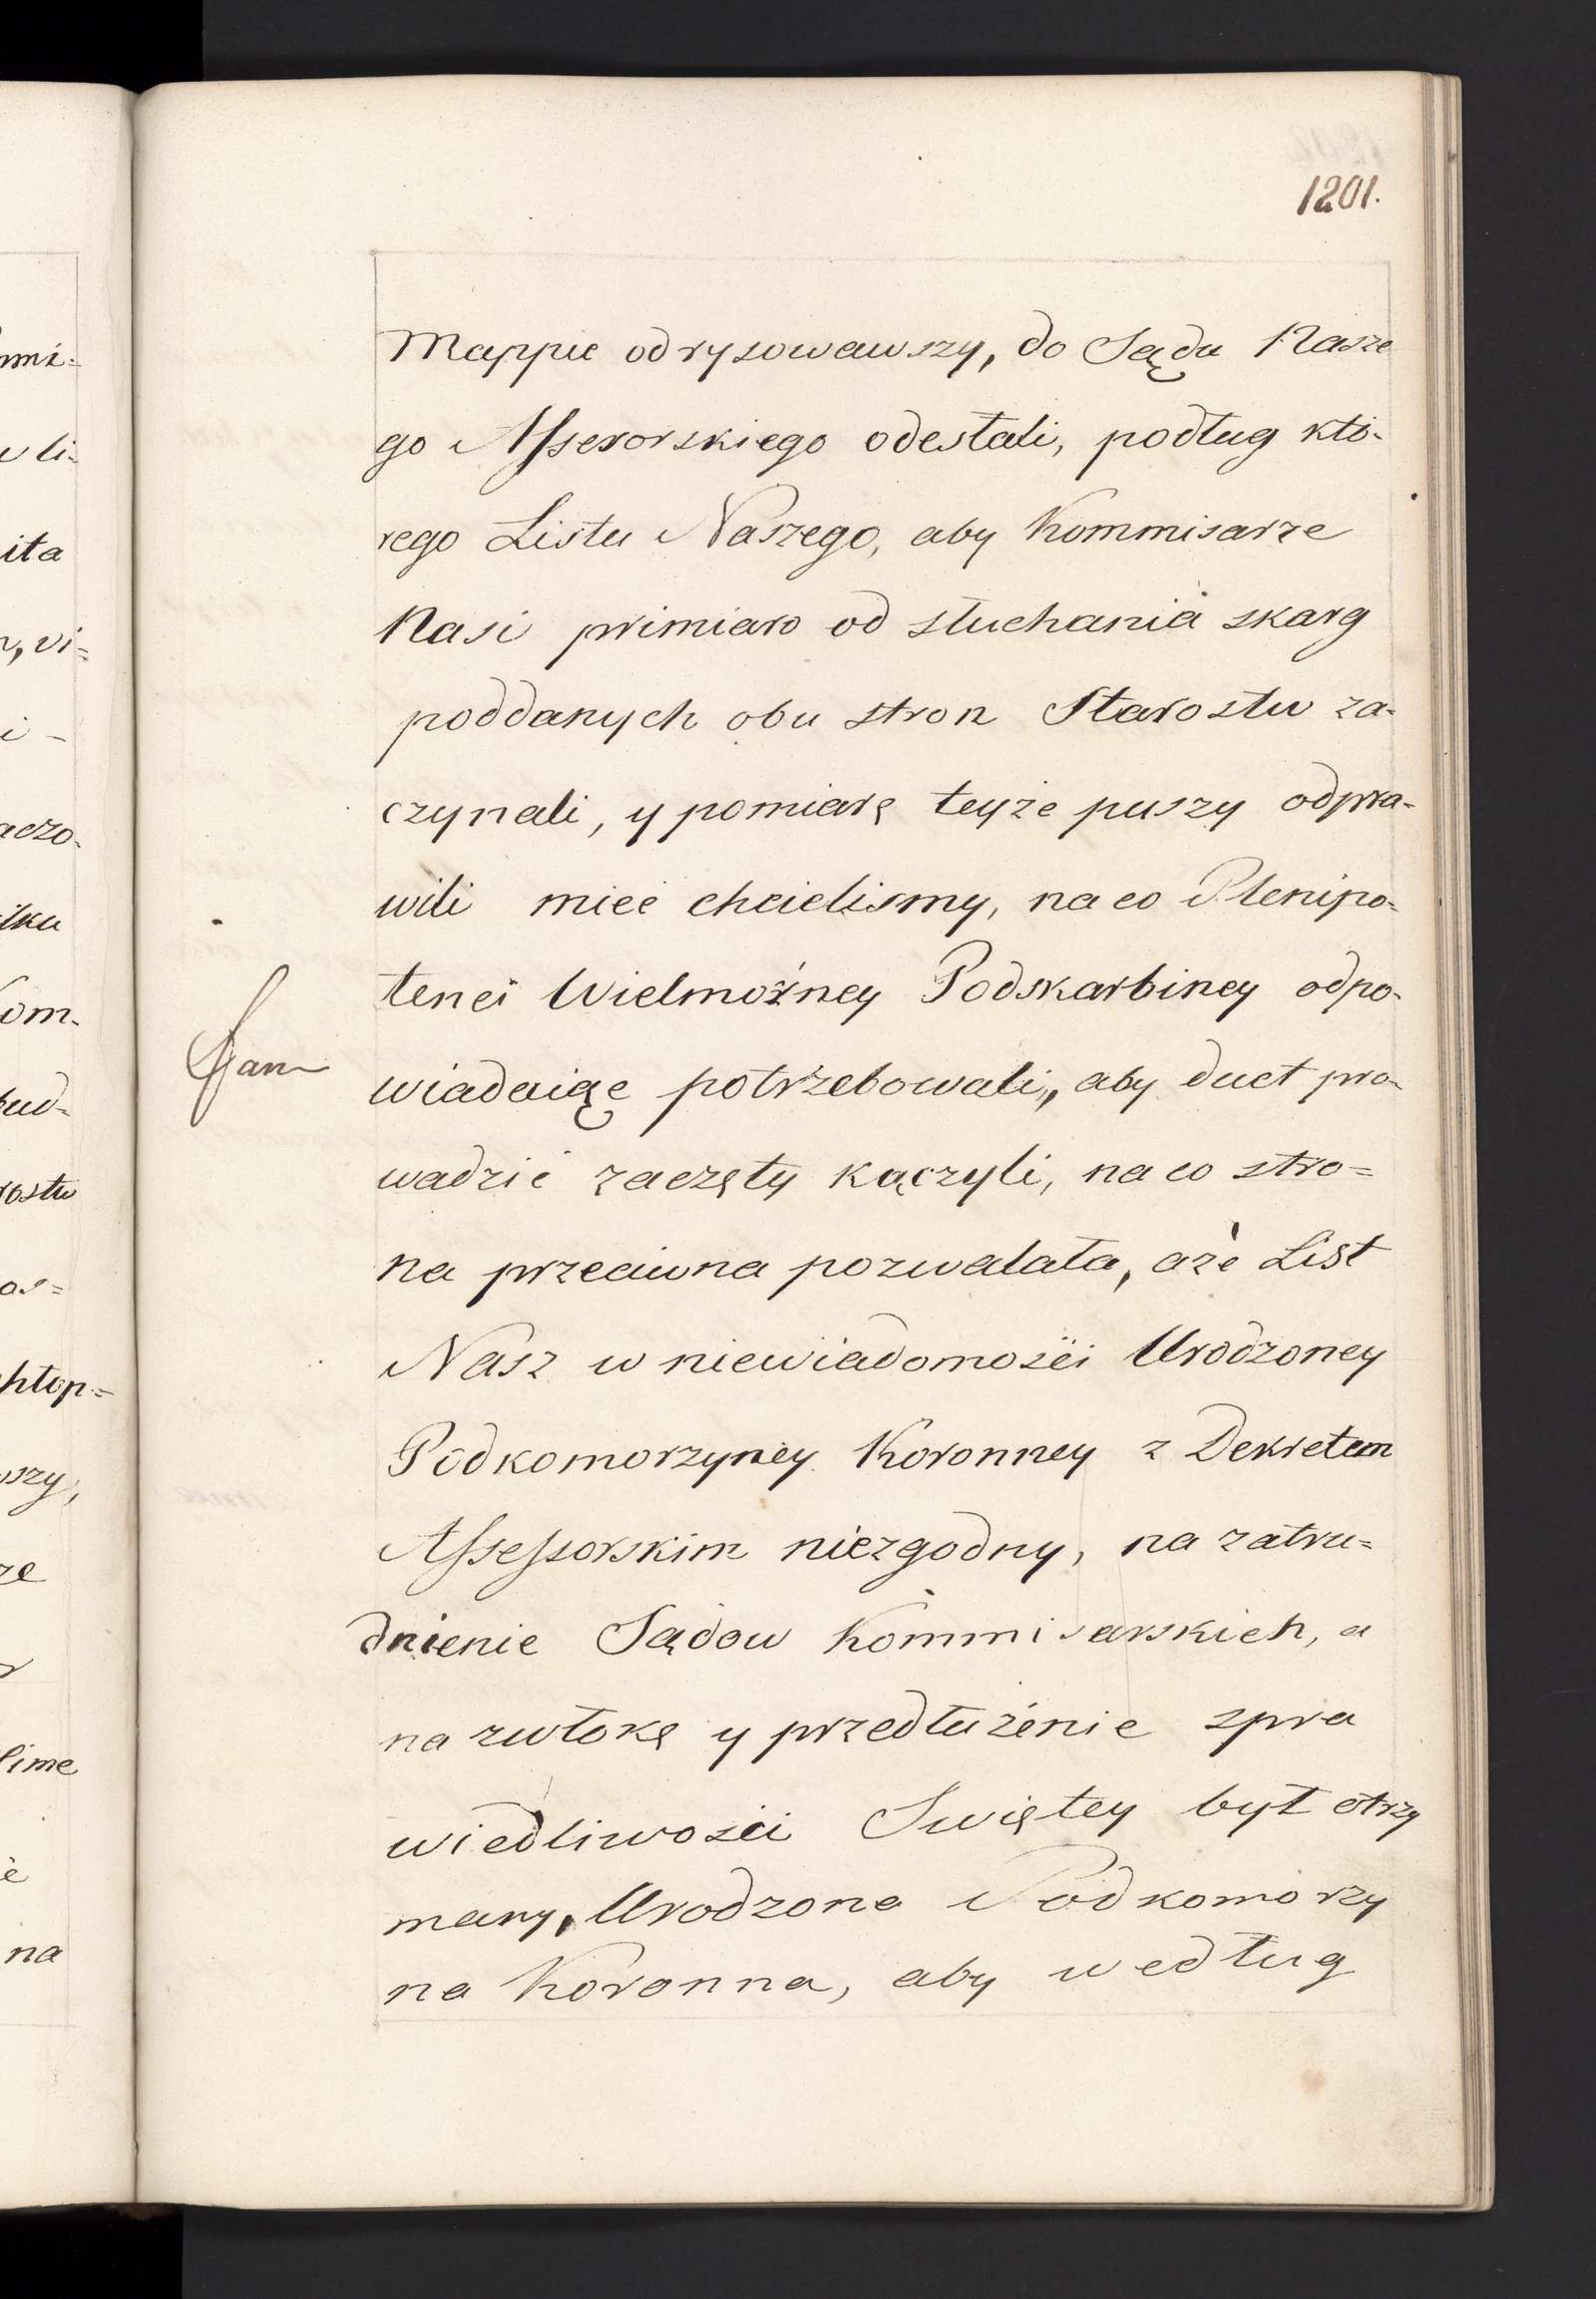 1201.
Mappie odrysowawszy, do Sądu Nasze
go Assesorskiego odesłali, podług któ-
rego Listu Naszego, aby Kommisarze
Nasi primiaro od słuchania skarg
poddanych obu stron Starostw za-
czynali, y pomiarę teyże puszy odpra-
wili mieć chcielismy, na co Plenipo-
tenci Wielmożney Podskarbiney odpo-
wiadaiąc potrzebowali, aby duct pro-
wadzić zaczęty kączyli, na co stro=
na przeciwna pozwalała, aże List
Nasz w niewiadomości Urodzoney
Podkomorzyney Koronney z Dekretem
Assessorskim niezgodny, na zatru=
dnienie Sądow Kommisarskich, a
na zwłokę y przedłużenie spra
wiedliwości Swiętey był otrzy
many, Urodzona Podkomorzy
na Koronna, aby według
mi-
li-
ita
vi=
i -
aczo-
ilku
om-
rostw
as=
hłop=
szy,
ze
lime
na